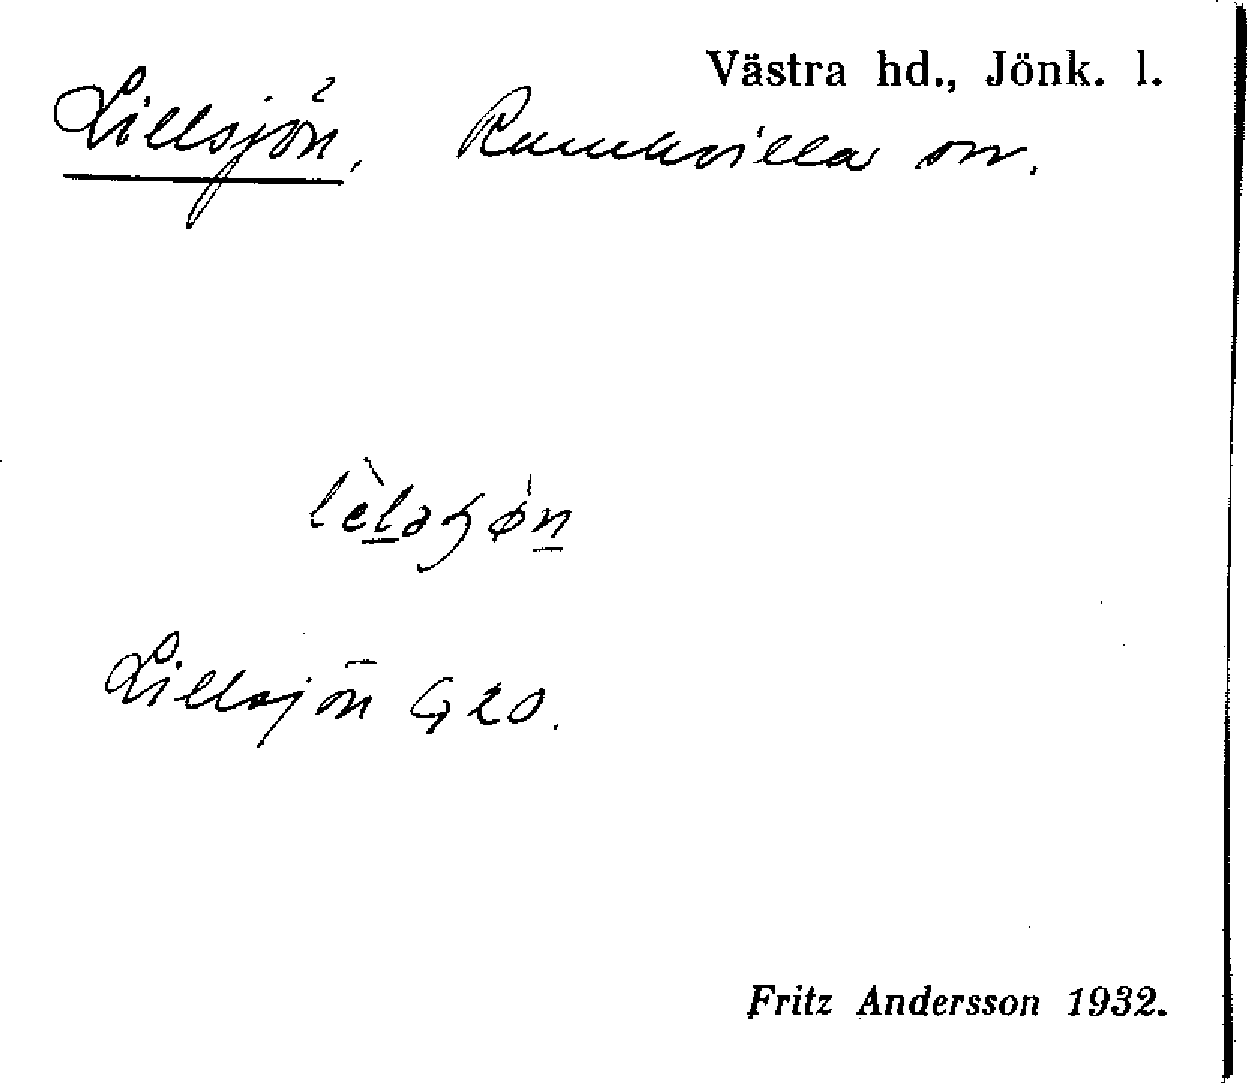 Västra hd., Jönk. l.
Lillsjön, Ramkvilla sn.
Lillsjön G 20.
Fritz Andersson 1932.